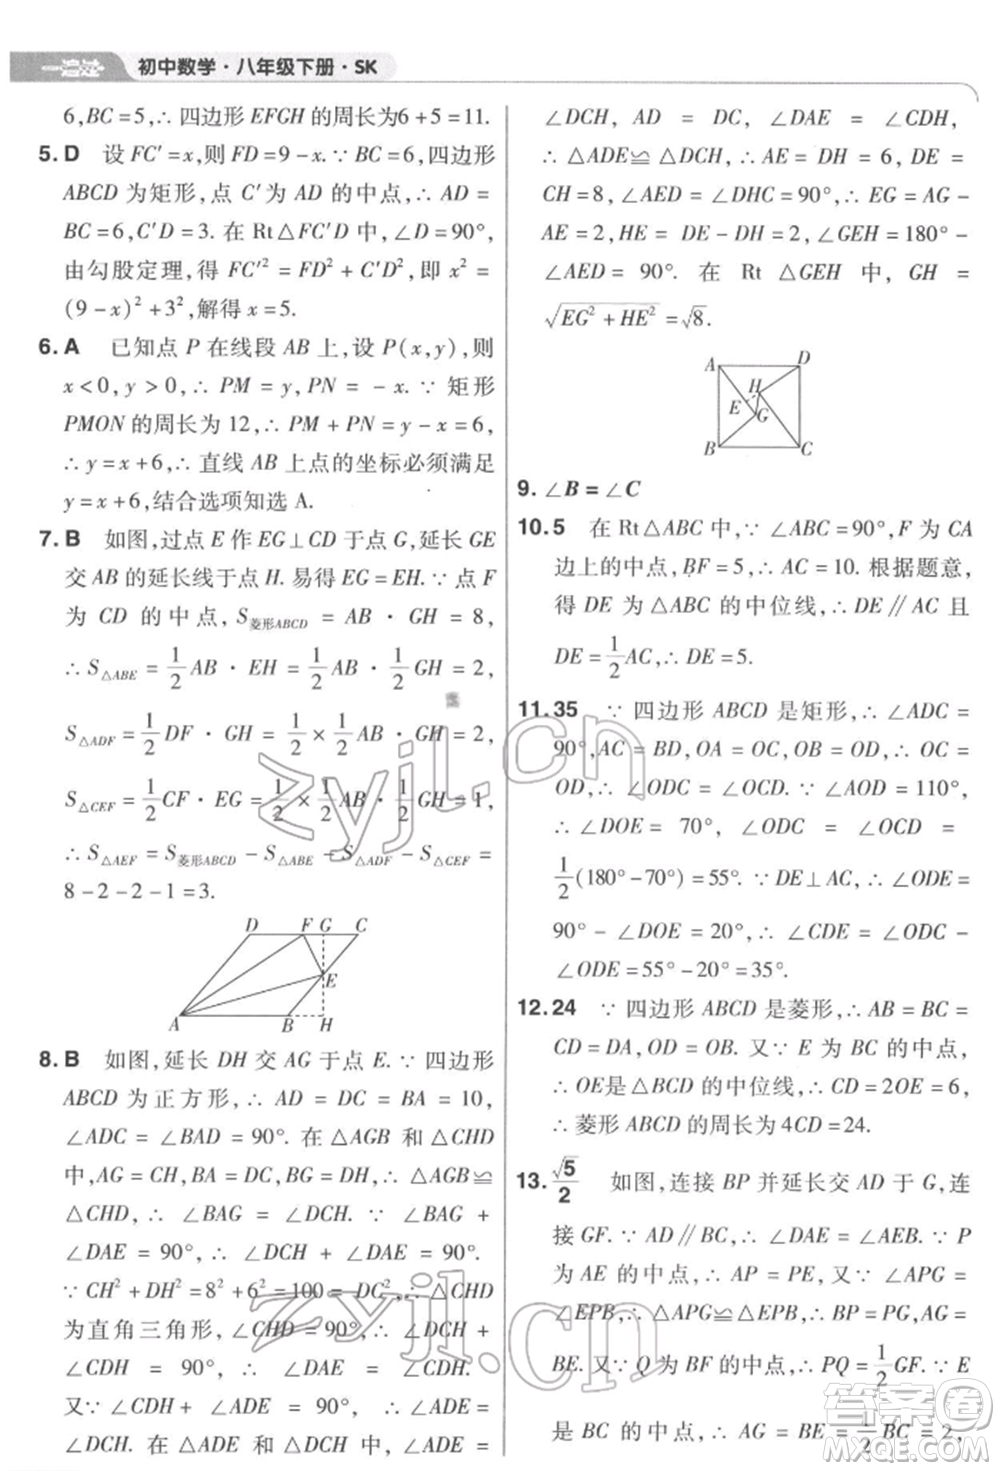 一遍过 初中数学·八年级下册·SK
6,BC=5,∴四边形EFGH的周长为6+5=11.
5.D 设FC′=x,则FD=9-x.∵BC=6,四边形
ABCD为矩形,点C′为AD的中点,∴AD=
BC=6,C′D=3.在Rt△FC′D中,∠D=90°,
由勾股定理,得FC′²=FD²+C′D²,即x²=
(9-x)²+3²,解得x=5.
6.A 已知点P在线段AB上,设P(x,y),则
x<0,y>0,∴PM=y,PN=-x.∵矩形
PMON的周长为12,∴PM+PN=y-x=6,
∴y=x+6,∴直线AB上点的坐标必须满足
y=x+6,结合选项知选A.
7.B 如图,过点E作EG⊥CD于点G,延长GE
交AB的延长线于点H.易得EG=EH.∵点F
为CD的中点,∴S菱形ABCD=AB·GH=8,
∴S△ABE=1/2AB·EH=1/2AB·1/2GH=2,
S△ADF=1/2DF·GH=1/2×1/2AB·GH=2,
S△CEF=1/2CF·EG=1/2×1/2AB·1/2GH=1,
∴S△AEF=S菱形ABCD-S△ABE-S△ADF-S△CEF=
8-2-2-1=3.
D F G C
E
A B H
8.B 如图,延长DH交AG于点E.∵四边形
ABCD为正方形,∴AD=DC=BA=10,
∠ADC=∠BAD=90°.在△AGB和△CHD
中,AG=CH,BA=DC,BG=DH,∴△AGB≌
△CHD,∴∠BAG=∠DCH.∵∠BAG+
∠DAE=90°,∴∠DCH+∠DAE=90°.
∵CH²+DH²=8²+6²=100=DC²,∴△CHD
为直角三角形,∠CHD=90°,∴∠DCH+
∠CDH=90°,∴∠DAE=∠CDH.
又∵∠DCH+∠CDH=90°,∴∠DAE+
∠ADE=90°.在△ADE和△DCH中,∠ADE=
∠DCH,AD=DC,∠DAE=∠CDH,
∴△ADE≌△DCH,∴AE=DH=6,DE=
CH=8,∠AED=∠DHC=90°,∴EG=AG-
AE=2,HE=DE-DH=2,∠GEH=180°-
∠AED=90°.在Rt△GEH中,GH=
√(EG²+HE²)=√8.
A D
H
E
G
B C
9.∠B=∠C
10.5 在Rt△ABC中,∵∠ABC=90°,F为CA
边上的中点,BF=5,∴AC=10.根据题意,
得DE为△ABC的中位线,∴DE∥AC且
DE=1/2AC,∴DE=5.
11.35 ∵四边形ABCD是矩形,∴∠ADC=
90°,AC=BD,OA=OC,OB=OD,∴OC=
OD,∴∠ODC=∠OCD.∵∠AOD=110°,
∴∠DOE=70°,∠ODC=∠OCD=
1/2(180°-70°)=55°.∵DE⊥AC,∴∠ODE=
90°-∠DOE=20°,∴∠CDE=∠ODC-
∠ODE=55°-20°=35°.
12.24 ∵四边形ABCD是菱形,∴AB=BC=
CD=DA,OD=OB.又∵E为BC的中点,
∴OE是△BCD的中位线,∴CD=2OE=6,
∴菱形ABCD的周长为4CD=24.
13.√5/2 如图,连接BP并延长交AD于G,连
接GF.∵AD∥BC,∴∠DAE=∠AEB.∵P
为AE的中点,∴AP=PE,又∵∠APG=
∠EPB,∴△APG≌△EPB,∴BP=PG,AG=
BE.又∵Q为BF的中点,∴PQ=1/2GF.∵E
是BC的中点,∴AG=BE=1/2BC=2,
zyjl.cn
zyjl.cn
答案圈
MXQE.COM